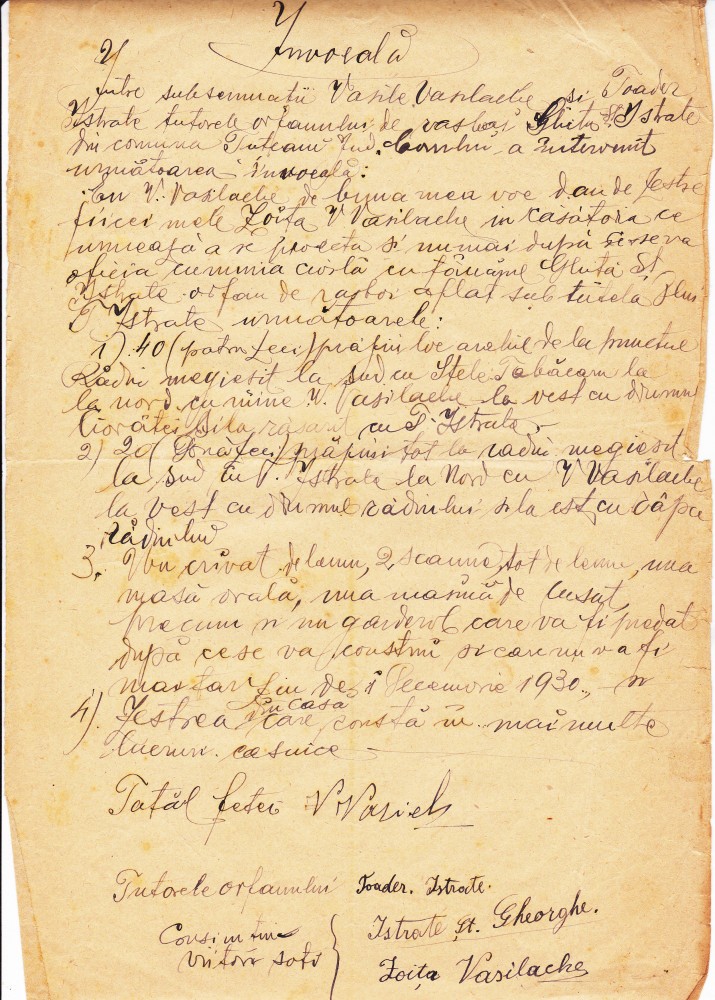 Învoeală
Între subsemnații Vasile Vasilache și Toader
Istrate tutorele orfanului de rasboi Ghiță Șt Istrate
din comuna Țuțcani Jud. Covurlui a intervenit
următoarea învoeală:
Eu V. Vasilache de buna mea voe dau de Zestre
fiicei mele Zoița V Vasilache in casătoria ce
urmează a se proecta și numai după ce se va
oficia cununia civilă cu tânărul Ghiță Șt
Istrate orfan de rasboi aflat sub tutela lui
T. Istrate următoarele:
1) 40 (patru zeci) prăjini loc arabil de la punctul
Rădiu megieșit la sud cu Ștefe Tabăcaru la
la nord cu mine V. Vasilache la vest cu drumul
și la răsarit cu T. Istrate
2) 20 (douăzeci) prăjini tot la radiu megiesit
la sud cu T. Istrate la Nord cu V Vasilache
la vest cu drumul rădiului si la est cu râpa
rădiului
3. Un crivat de lemn, 2 scaune, tot de lemn, una
masă ovală, una mașină de cusut,
precum și un garderob care va fi predat
după ce se va construi și care nu va fi
mai tarziu de 1 Decemvrie 1930., și
4). Zestrea din casă care constă în mai multe
lucruri casnice
Tatăl fetei V Vasilache
Tutorele orfanului Toader. Istrate.
Consimțim
viitorii soți
Istrate Șt. Gheorghe.
Zoița Vasilache